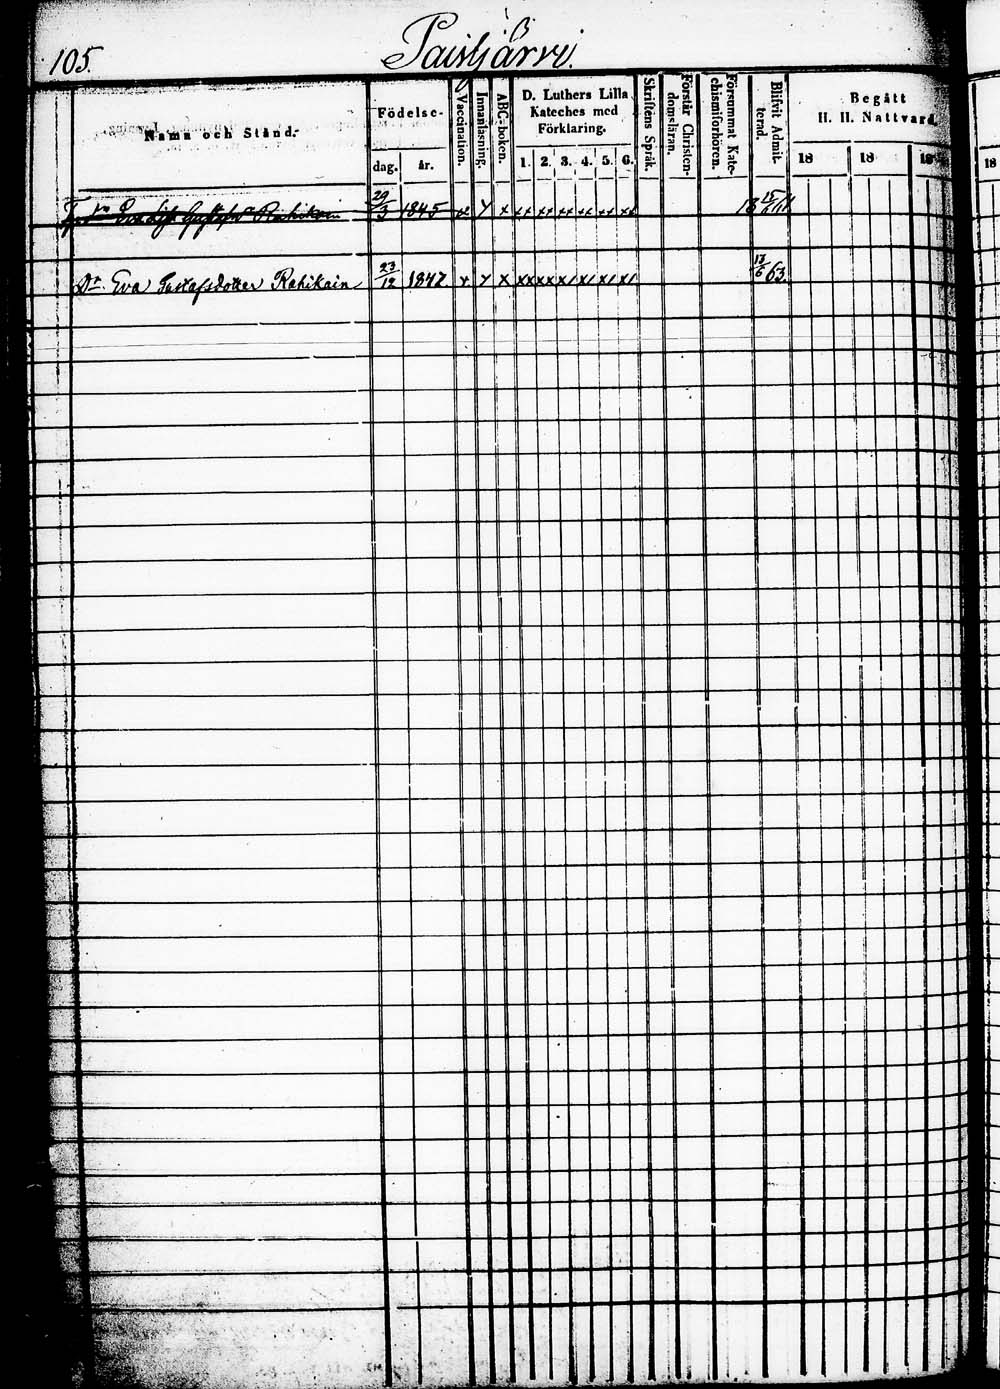 105. Paisljärvi.
Namn och Stånd.
Födelse-
dag. år.
Vaccination.
Innanläsning.
ABC-boken.
D. Luthers Lilla
Kateches med
Förklaring.
1. 2. 3. 4. 5. 6.
Skriftens Språk.
Förstår Christen-
domsläran.
Försummat Kate-
chismiförhören.
Blifvit Admit-
terad.
Begått
H. H. Nattvard.
18 18 18
18
Rahikain 29/3 1845 x y x xx xx xx xx xx xx
Dr. Eva Gustafsdotter Rahikain 23/12 1847 x y x xx xx x/ x/ x/ x/ 13/6 63.